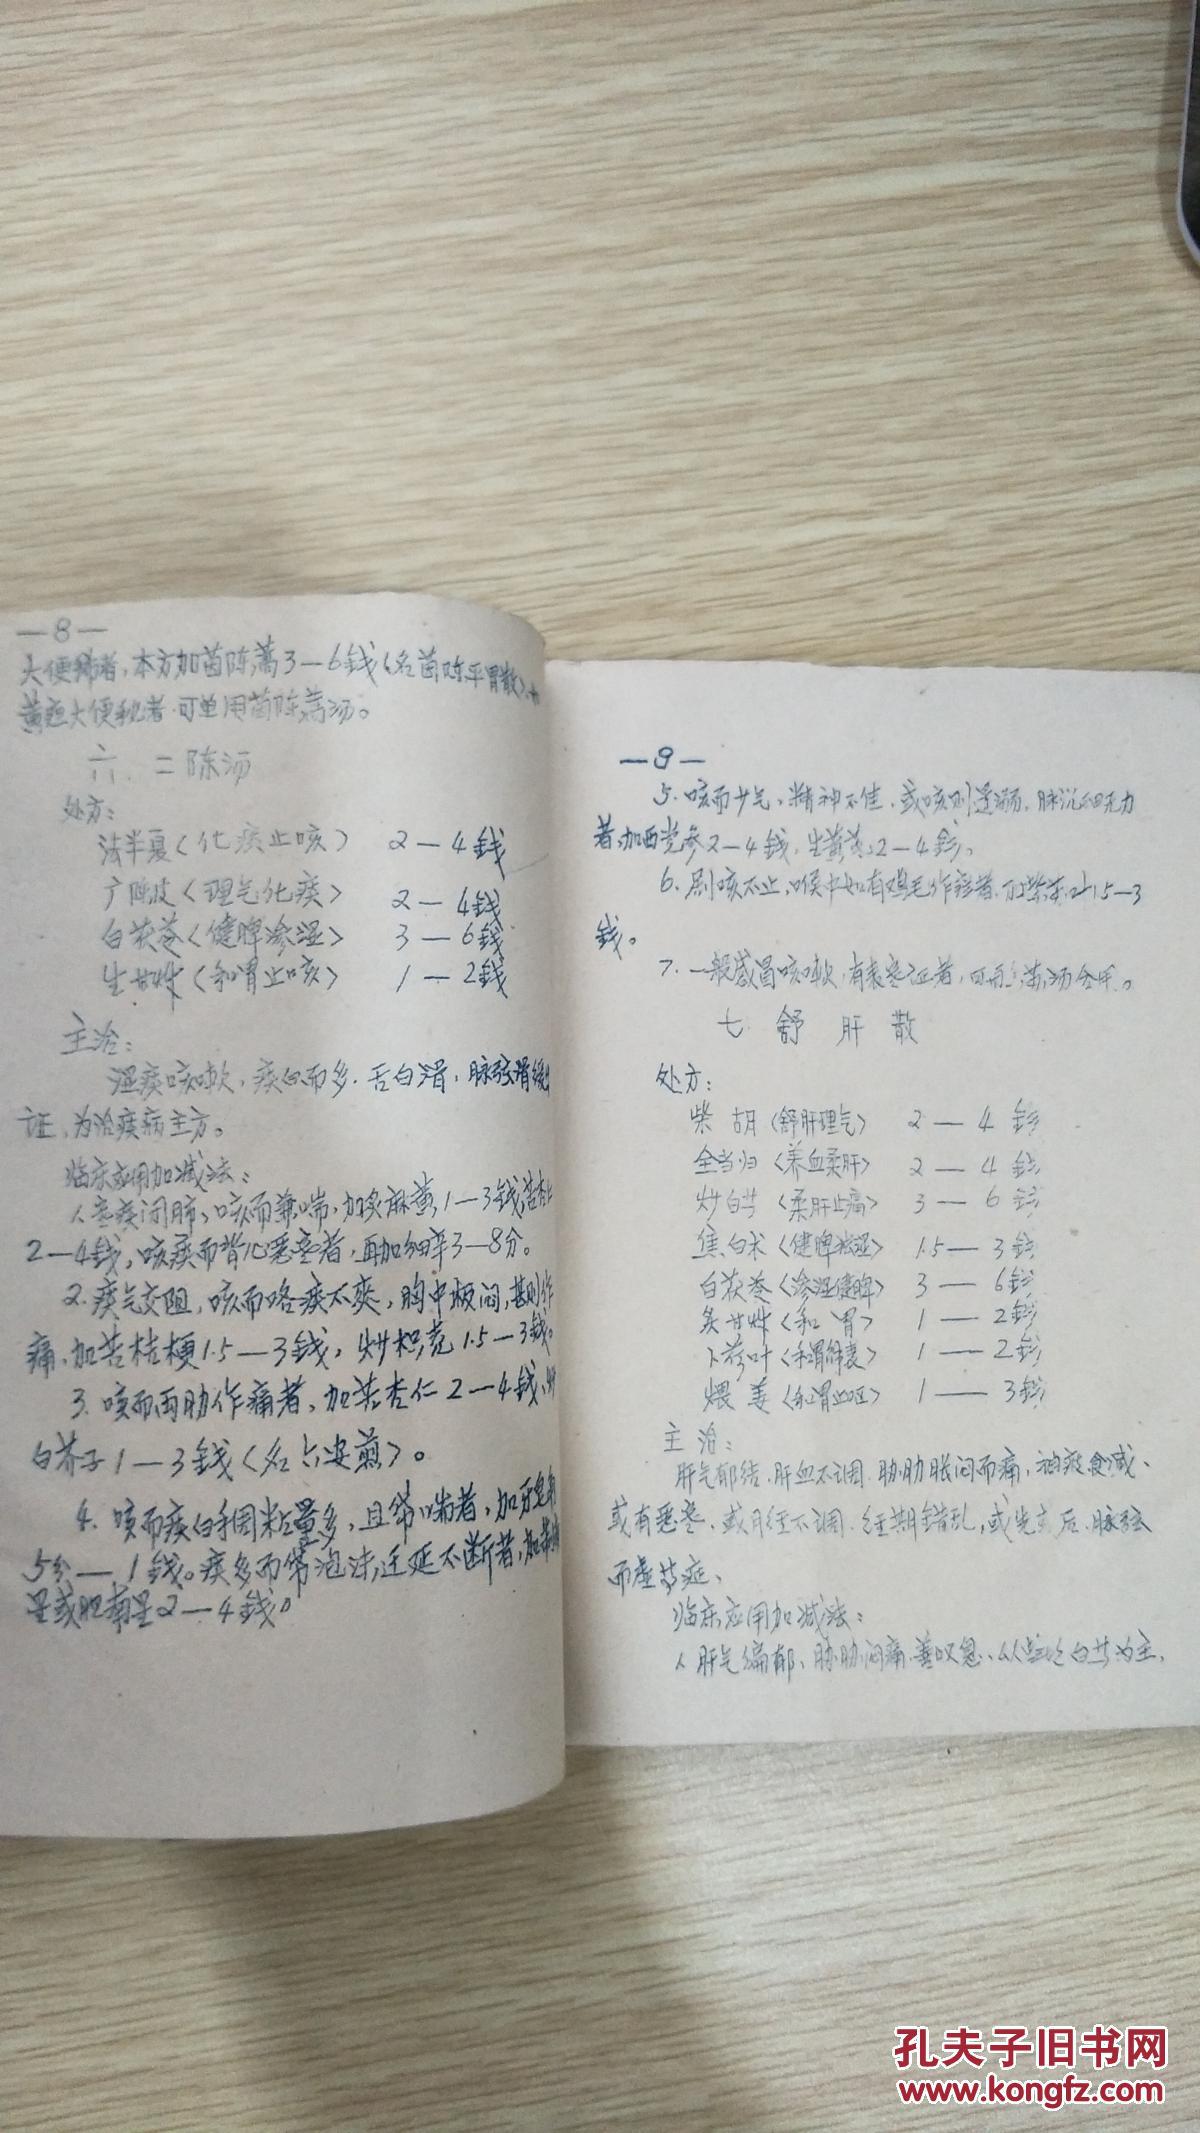 —8—
大便稀者，本方加茵陈蒿3—6錢〈名茵陈平胃散〉，
黄疸大便秘者可单用茵陈蒿汤。
六、二陈汤
处方：
法半夏〈化痰止咳〉 2—4錢
广陈皮〈理气化痰〉 2—4錢
白茯苓〈健脾渗湿〉 3—6錢
生甘草〈和胃止咳〉 1—2錢
主治：
湿痰咳嗽，痰白而多，舌白滑，脉弦滑缓
证，为治痰病主方。
临床应用加减法：
1.寒痰闭肺，咳而兼喘，加炙麻黄1—3錢，苦杏仁
2—4錢，咳痰而背心恶寒者，再加细辛3—8分。
2.痰气交阻，咳而咯痰不爽，胸中板闷，甚则作
痛，加苦桔梗1.5—3錢，炒枳壳1.5—3錢。
3.咳而两胁作痛者，加苦杏仁2—4錢，
白芥子1—3錢〈名六安煎〉。
4.咳而痰白利周粘量多，且带喘者，加牙皂角
5分—1錢。痰多而带泡沫，迁延不断者，加
星或胆南星2—4錢。
—9—
5.咳而少气，精神不佳，或咳则遗溺，脉沉细无力
者，加西党参2—4錢，生黄芪2—4錢。
6.剧咳不止，喉中如有鸡毛作痒者，加紫苏叶1.5—3
錢。
7.一般感冒咳嗽，有表寒证者，
七 舒肝散
处方：
柴胡〈舒肝理气〉 2—4錢
全当归〈养血柔肝〉 2—4錢
炒白芍〈柔肝止痛〉 3—6錢
焦白术〈健脾燥湿〉 1.5—3錢
白茯苓〈渗湿健脾〉 3—6錢
炙甘草〈和胃〉 1—2錢
卜荷叶〈和胃解表〉 1—2錢
煨姜〈和胃止呕〉 1—3錢
主治：
肝气郁结，肝血不调，胁肋胀闷而痛，神疲食减、
或有恶寒，或月经不调，经期错乱，或先或后，脉弦
而虚等症、
临床应用加减法：
1.肝气偏郁、胁肋闷痛、善叹息、以柴胡白芍为主，
孔夫子旧书网
www.kongfz.com